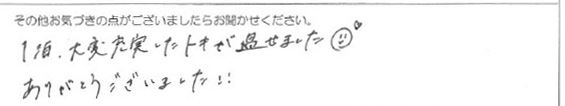 その他お気づきの点がございましたらお聞かせください。
1泊、大変充実したトキが過せました
ありがとうございました!!